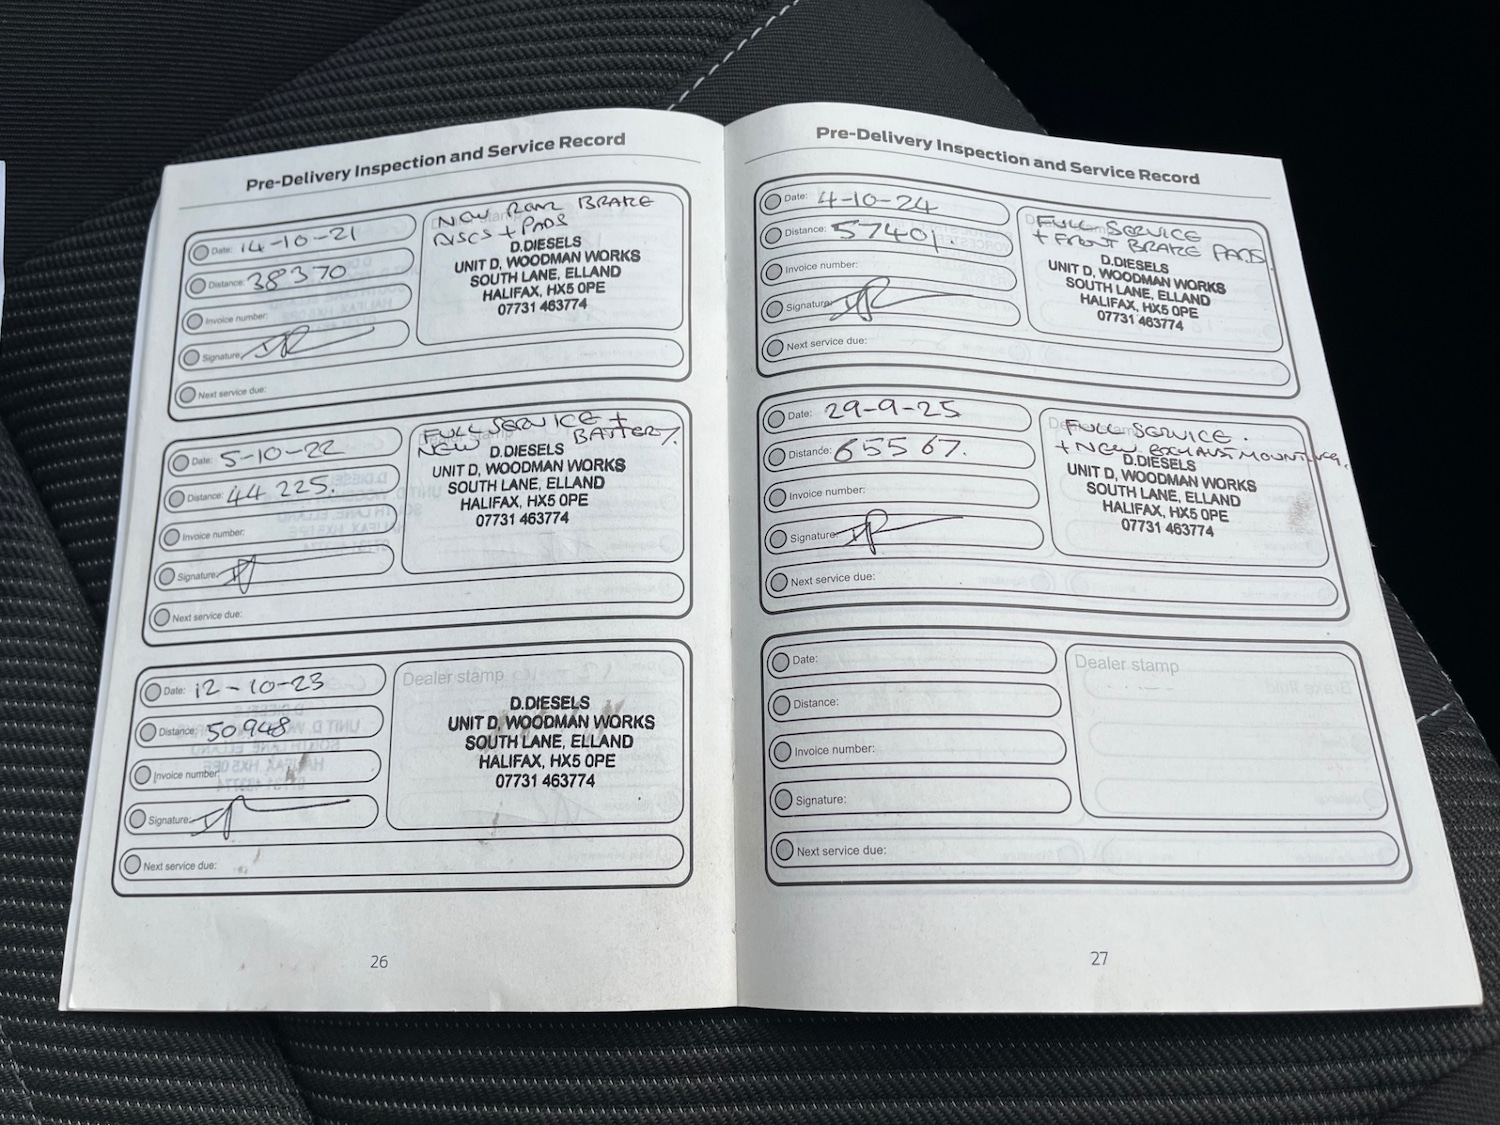 Pre-Delivery Inspection and Service Record
Date: 14-10-21
Distance: 38370
Invoice number:
Signature:
Next service due:
NEW REAR BRAKE
DISCS + PADS
D.DIESELS
UNIT D, WOODMAN WORKS
SOUTH LANE, ELLAND
HALIFAX, HX5 0PE
07731 463774
Date: 5-10-22
Distance: 44225.
Invoice number:
Signature:
Next service due:
FULL SERVICE +
NEW BATTERY.
Dealer stamp
D.DIESELS
UNIT D, WOODMAN WORKS
SOUTH LANE, ELLAND
HALIFAX, HX5 0PE
07731 463774
Date: 12-10-23
Distance: 50948
Invoice number:
Signature:
Next service due:
Dealer stamp
D.DIESELS
UNIT D, WOODMAN WORKS
SOUTH LANE, ELLAND
HALIFAX, HX5 0PE
07731 463774
26
Pre-Delivery Inspection and Service Record
Date: 4-10-24
Distance: 57401.
Invoice number:
Signature:
Next service due:
FULL SERVICE
+ FRONT BRAKE PADS.
D.DIESELS
UNIT D, WOODMAN WORKS
SOUTH LANE, ELLAND
HALIFAX, HX5 0PE
07731 463774
Date: 29-9-25
Distance: 65567.
Invoice number:
Signature:
Next service due:
FULL SERVICE.
+ NEW EXHAUST MOUNTING.
D.DIESELS
UNIT D, WOODMAN WORKS
SOUTH LANE, ELLAND
HALIFAX, HX5 0PE
07731 463774
Date:
Distance:
Invoice number:
Signature:
Next service due:
Dealer stamp
27